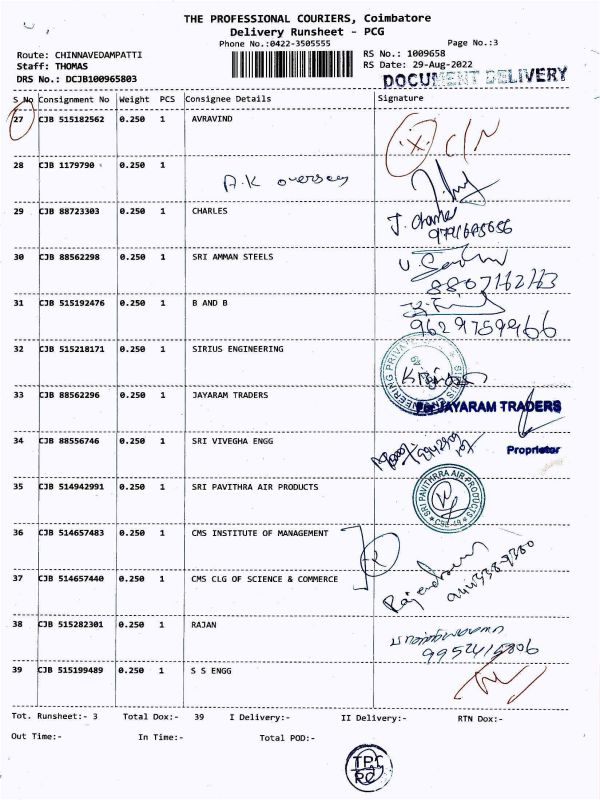 THE PROFESSIONAL COURIERS, Coimbatore
Delivery Runsheet - PCG
Phone No.:0422-3505555
Page No.:3
Route: CHINNAVEDAMPATTI
RS No.: 1009658
Staff: THOMAS
RS Date: 29-Aug-2022
DRS No.: DCJB100965803
DOCUMENT DELIVERY
S No Consignment No Weight PCS Consignee Details Signature
27 CJB 515182562 0.250 1 AVRAVIND
C/N
28 CJB 1179790 0.250 1
A.K overseas
29 CJB 88723303 0.250 1 CHARLES
J. Charles
30 CJB 88562298 0.250 1 SRI AMMAN STEELS
31 CJB 515192476 0.250 1 B AND B
9629759966
32 CJB 515218171 0.250 1 SIRIUS ENGINEERING
33 CJB 88562296 0.250 1 JAYARAM TRADERS
For JAYARAM TRADERS
34 CJB 88556746 0.250 1 SRI VIVEGHA ENGG
Proprietor
35 CJB 514942991 0.250 1 SRI PAVITHRA AIR PRODUCTS
SRI PAVITHRRA AIR PRODUCTS
36 CJB 514657483 0.250 1 CMS INSTITUTE OF MANAGEMENT
37 CJB 514657440 0.250 1 CMS CLG OF SCIENCE & COMMERCE
38 CJB 515282301 0.250 1 RAJAN
39 CJB 515199489 0.250 1 S S ENGG
Tot. Runsheet:- 3 Total Dox:- 39 I Delivery:- II Delivery:- RTN Dox:-
Out Time:- In Time:- Total POD:-
TPC